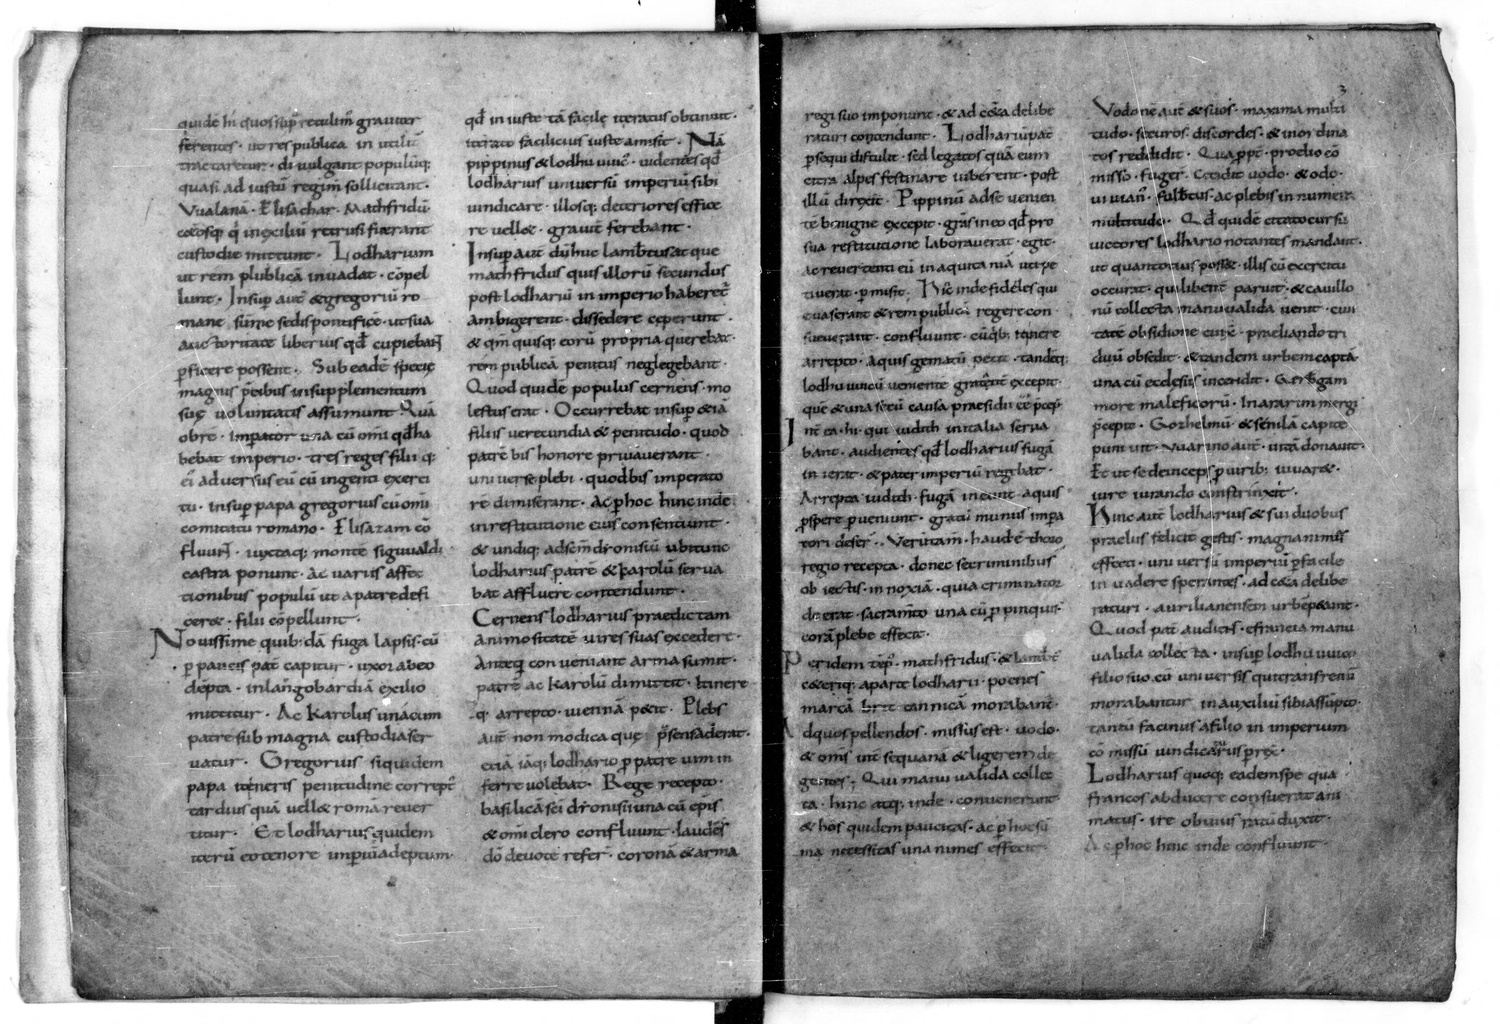 quidē hi quos sup̄ retulim̄ graviter
ferentes · ut res publica in utilit
tractaretur · di vulgant populūq;
quasi ad iustū regim̄ sollicitant ·
Vualanā · Elisachar · Mathfridū
cet̄osq; q̇ in exiliū retrusi fuerant
custodie mittunt · Lodharium
ut rem plublicā invadat · cōpel
lunt · Insup aut̄ & gregoriū ro
mane sūme sedis pontificē · ut sua
auctoritate liberius qđ cupiebaꞃ̄
p̄ficere possent · Sub eadē specie
magnis p̄cibus in supplementum
suę voluntatis assumunt
obrē · imp̄ator una cū om̄i qđ ha
bebat imperio · tres reges filii q;
ei adversus eū cū ingenti exerci
tu · insup papa gregorius cū om̄i
comitatu romano · Elisazam cō
fluun̄ · iuxtaq; monte siguualdi
castra ponunt · Ac variis affec
tionibus populū ut a patre defi
cer& · filii cōpellunt ·
Novissime quib; dā fuga lapsis · cū
p paucis pat̄ capitur · uxor abeo
dēpta · in langobardiā exilio
mittitur · Ac Karolus unācum
patre sub magna custodia ser
vatur · Gregorius siquidem
papa itineris penitudine correpť
tardius quā vell& romā rever
titur · Et lodharius quidem
iterū eo tenore imperiū adeptum ·
qđ in iuste tā facile iteratus obtinuit ·
iterato facilius iuste amisit · Nā
pippinus & lodhuuuic̄ · videntes qđ
lodharius universū imperiū sibi
vindicare · illosq; deteriores effice
re vell& · gravit̄ ferebant ·
Insup aut̄ dū huc lamb̄tus atque
mathfridus quis illorū secundus
post lodhariū in imperio haberet̄
ambigerent · dissidere ceperunt ·
& qm̄ quisq; eorū propria querebat ·
rem publicā penitus neglegebant ·
Quod quidē populus cernens · mo
lestus erat · Occurrebat insup & iā
filiis verecundia & penitudo · quod
patrē bis honore privaverant ·
universe plebi · quod bis imperato
rē dimiserant · Ac p hoc hinc inde
in restitutione eius consentiunt ·
& undiq; ad sc̄m dionisiū ubi tunc
lodharius patrē & karolū serva
bat affluere contendunt ·
Cernens lodharius praedictam
animositatē vires suas excedere ·
Anteq̄ conveniant arma sumit ·
patrē ac karolū dimittit · Itinere
q; arrepto · viennā petit · Plebs
aut̄ non modica que p̄sens aderat ·
etiā iāq; lodhario p patre vim in
ferre volebat · Rege recepto ·
basilicā sc̄i dionisii una cū epis̄
& om̄i clero confluunt · laudes
dō devote refer̄ · coronā & arma
regi suo imponunt · & ad cet̄a delibe
raturi contendunt · Lodhariū pat̄
p̄sequi distulit · sed legatos qui eum
extra alpes festinare iuberent · post
illū direxit · Pippinū adse venien
tē benigne excepit · grās in eo qđ pro
sua restitutione laboraverat · egit ·
ac revertenti cū in aquitaniā uti pe
tiverat · p misit · Hic̄ inde fideles qui
evaserant & rem publicā regere con
sueverant · confluunt · cū q̄b; itinere
arrepto · aquis gematū petit · tandēq;
lodhuuuicū veniente gratāt̄ excepit ·
quē & una secū causa praesidii ēē p̄cep ·
Int̄ ea · hi · qui iudith in italia serva
bant · audientes qđ lodharius fugā
in ierat · & pater imperiū regebat ·
Arrepta iudith · fugā ineunt · aquis
p̄spere p veniunt · gratū munus impa
tori defer̄ · Verūtam̄ · haud ē thoro
regio recepta · donec se criminibus
obiectis · innoxiā · quia criminator
deerat · sacram̄to una cū p pinquis ·
corā plebe effecit ·
Per idem tēp̄ · mathfridus · & lamb̄t̄
cet̄eriq; a parte lodharii · penes
marcā brit tannicā morabant̄ ·
Ad quos pellendos · missus est · vodo ·
& om̄s int̄ sequanā & ligerem de
gentes ; Qui manu valida collec
ta · hinc atq; inde · convenerunt ·
& hos quidem paucitas · ac p hoc sū
ma necessitas una nimes effecit ·
3
Vodonē aut̄ & suos · maxima multi
tudo · securos · discordes · & inordina
tos reddidit · Qua ppt̄ · proelio cō
misso · fuger̄ · Cecidit vodo · & odo ·
vivian̄ · fulb̄tus · ac plebis innumera
multitudo · Qđ quidē citato cursu
victores lodhario notantes mandant ·
ut quantotius poss& · illis cū exercitu
occurat · qui libent̄ paruit · & cavillo
nū collecta manu valida venit · civi
tatē obsidione cinx̄ · praeliando tri
duū obsedit · & tandem urbem captā
una cū ecclesiis incendit · Gerb̄gam
more maleficorū · In ararim mergi
p̄cepit · Gozhelmū & senilā capite
punivit · Vuarino aut̄ · vitā donavit ·
Et ut se deinceps p virib; iuvar& ·
iure iurando constrinxit ·
Hinc aut̄ lodharius & sui duobus
praeliis felicit̄ gestis · magnanimes
effecti · universū imperiū p̄facile
invadere sperantes · ad cet̄a delibe
raturi · aurilianensem urbē petunt ·
Quod pat̄ audiens · e francia manu
valida collecta · insup lodhuuuico
filio suo cū universis qui trans renū
morabantur · in auxiliū sibi assūpto ·
tantū facinus a filio in imperium
cōmissū vindicaturus perḡ ·
Lodharius quoq; eadem spe qua
francos abducere consuerat ani
matus · ire obvius ratū duxit ·
Ac p hoc hinc inde confluunt ·